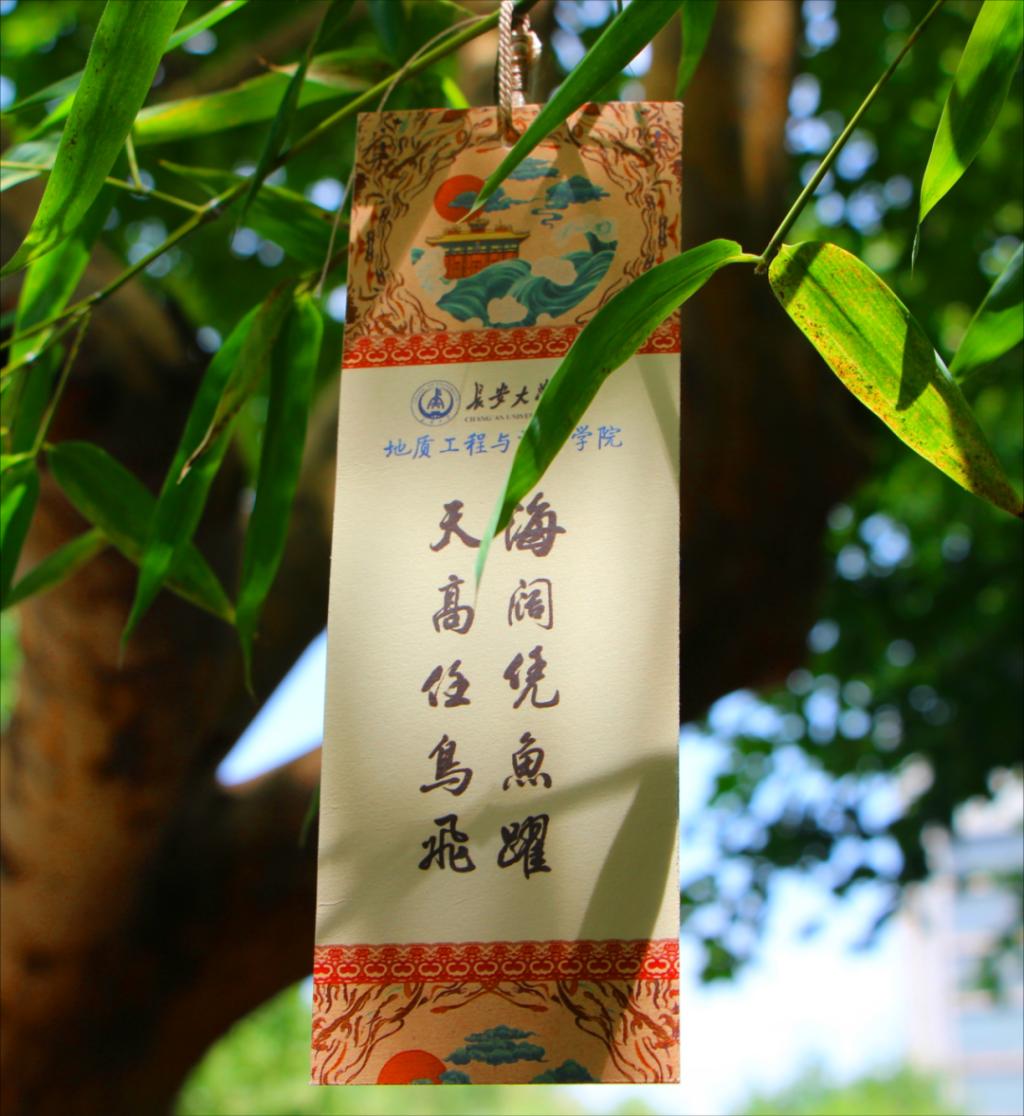 长安大
CHANG'AN
地质工程与 学院
海阔凭魚躍
天高任鳥飛